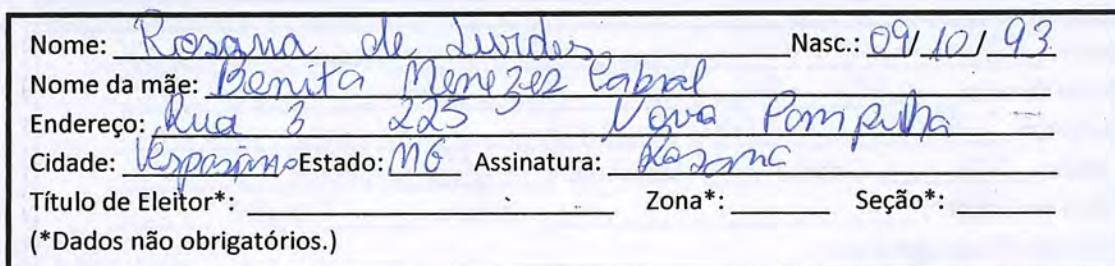 Nome: Rosana de Lurdes Nasc.: 09/10/93
Nome da mãe: Benita Menezes Cabral
Endereço: Rua 3 225 Nova Pampulha
Cidade: Vespasiano Estado: MG Assinatura: Rosana
Título de Eleitor*: Zona*: Seção*:
(*Dados não obrigatórios.)